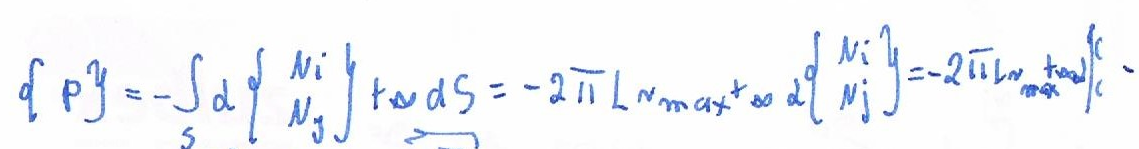 {P} = -∫_S α {N_i N_j} t∞ dS = -2π L r_max t∞ α {N_i N_j} = -2π L r_max t∞ α {